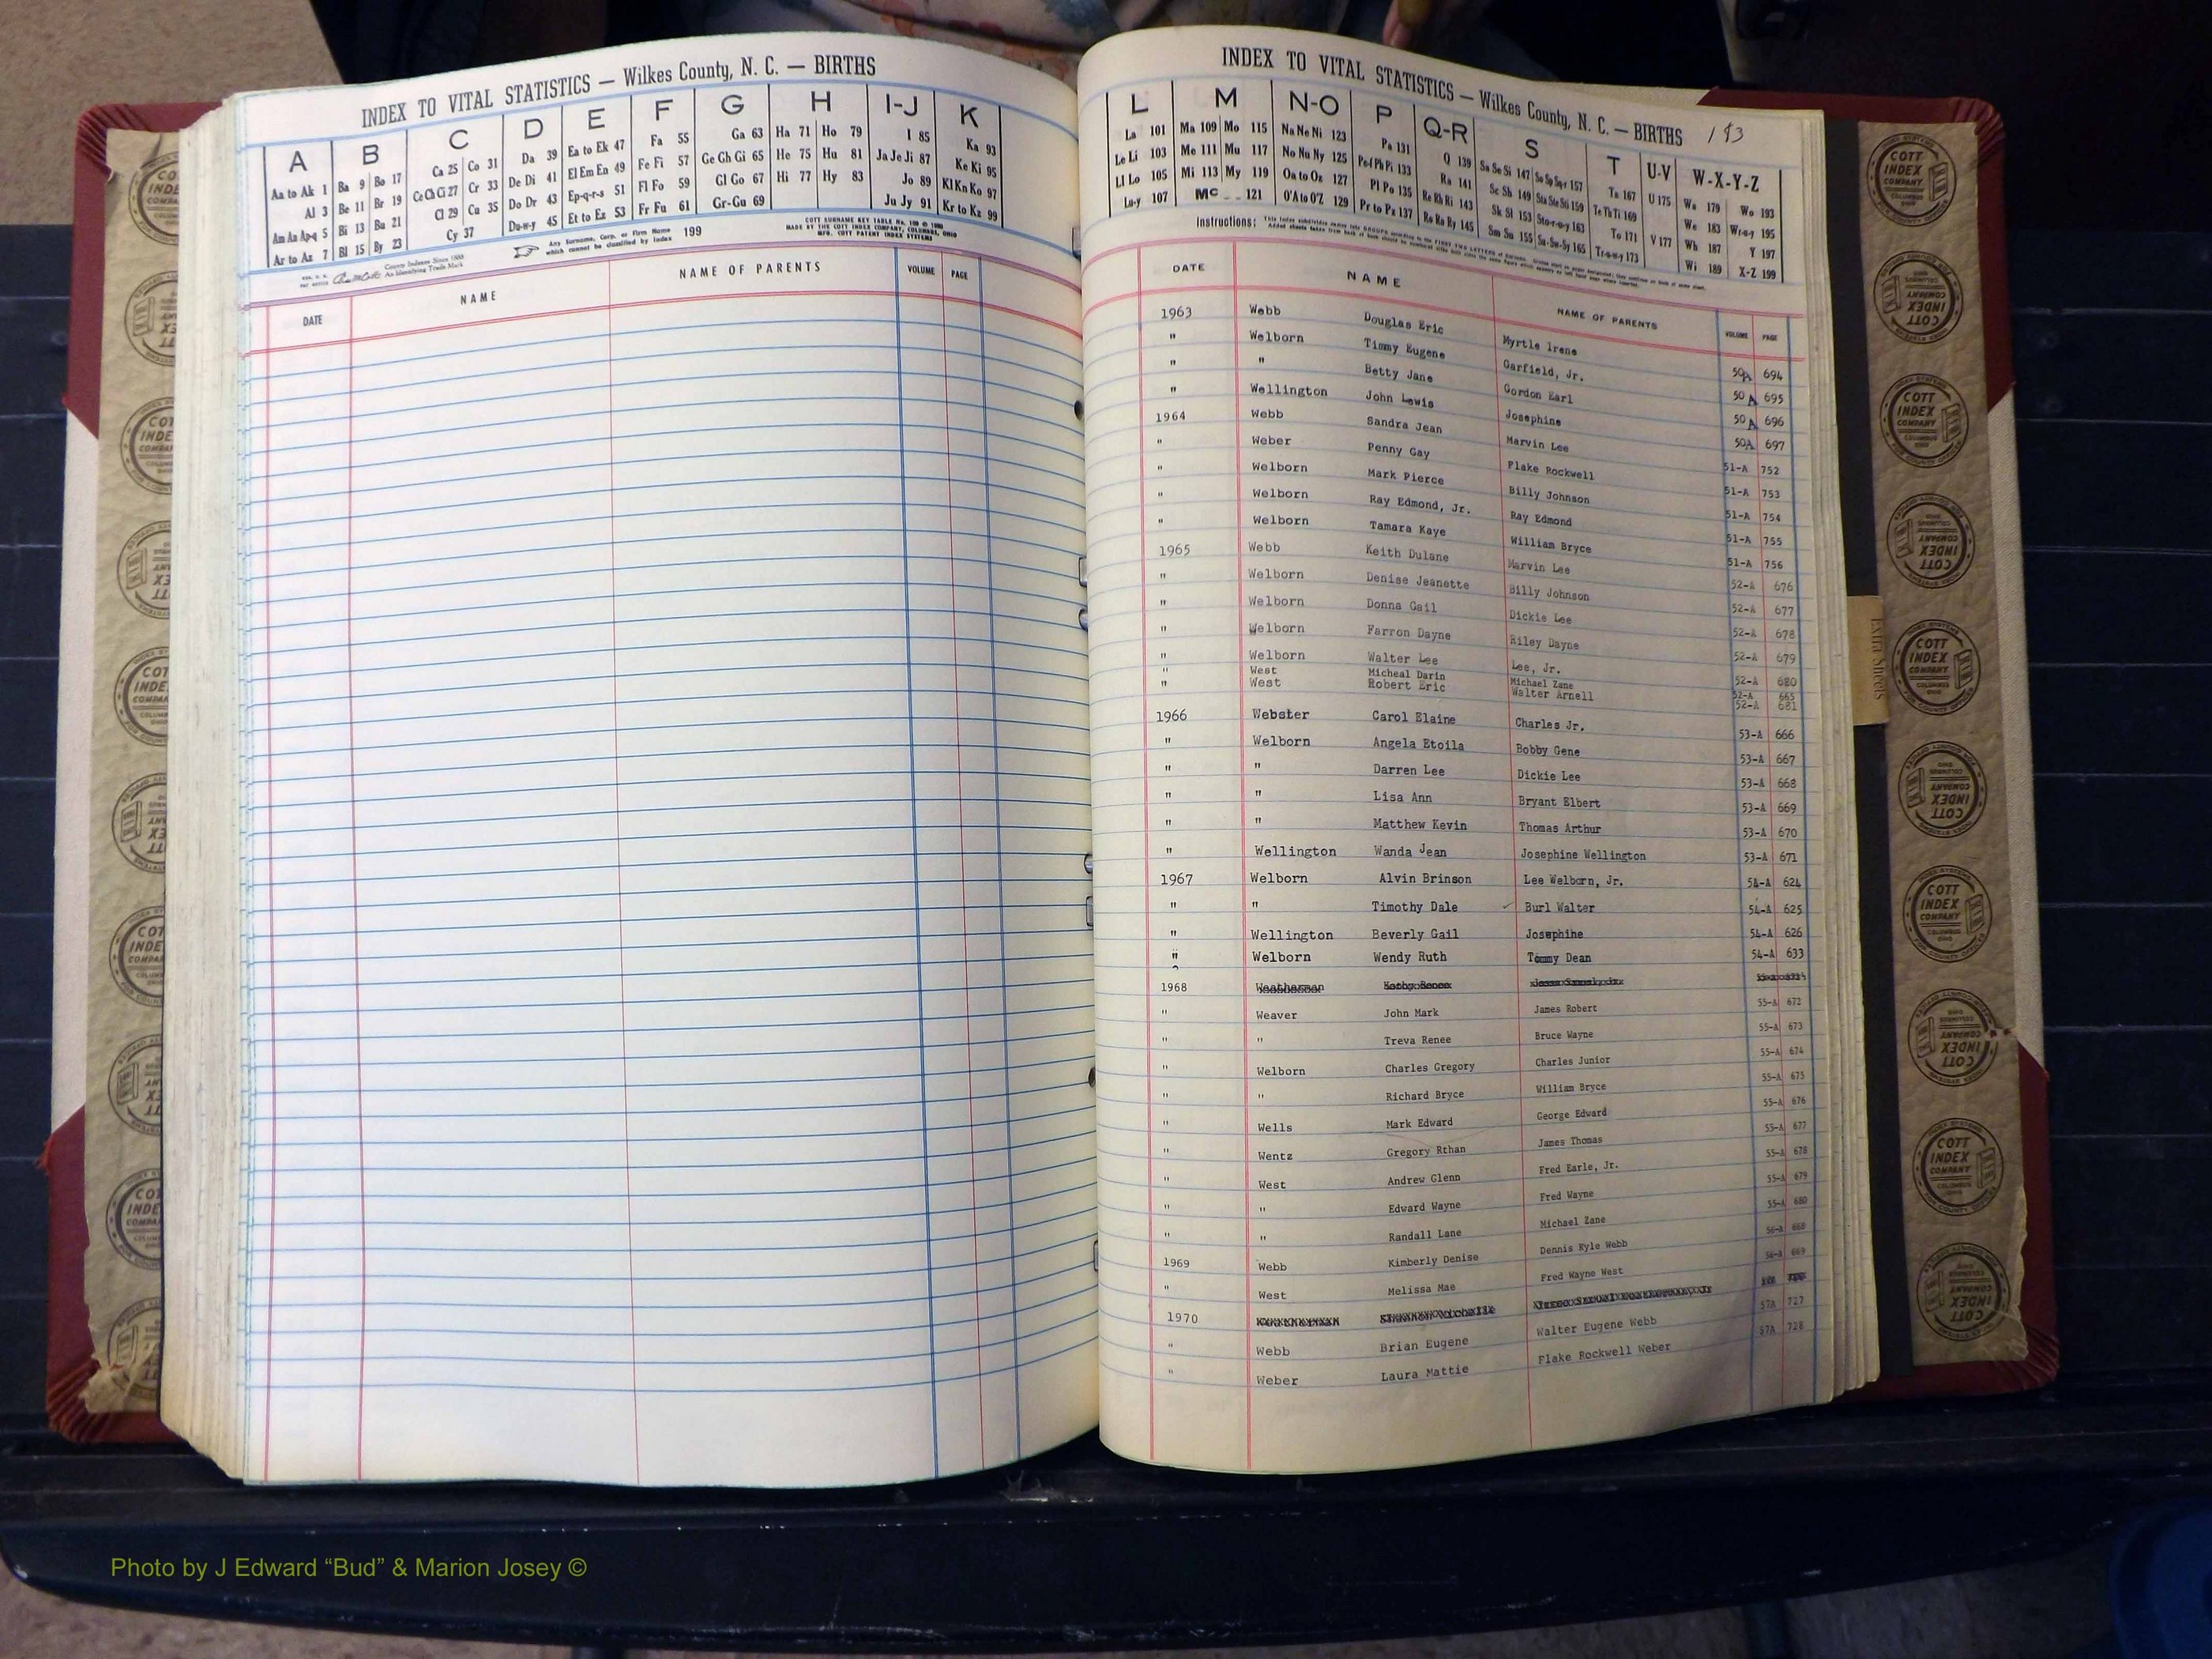 INDEX TO VITAL STATISTICS — Wilkes County, N. C. — BIRTHS
A B C D E F G H I-J K
Aa to Ak 1 Ba 9 Bo 17 Ca 25 Co 31 Da 39 Ea to Ek 47 Fa 55 Ga 63 Ha 71 Ho 79 I 85 Ka 93
Al 3 Be 11 Br 19 Ce Ch Ci 27 Cr 33 De Di 41 El Em En 49 Fe Fi 57 Ge Gh Gi 65 He 75 Hu 81 Ja Je Ji 87 Ke Ki 95
Am An Ap-q 5 Bi 13 Bu 21 Cl 29 Cu 35 Do Dr 43 Ep-q-r-s 51 Fl Fo 59 Gl Go 67 Hi 77 Hy 83 Jo 89 Kl Kn Ko 97
Ar to Az 7 Bl 15 By 23 Cy 37 Du-w-y 45 Et to Ez 53 Fr Fu 61 Gr-Gu 69 Ju Jy 91 Kr to Kz 99
County Indexes Since 1888
An Identifying Trade Mark
Any Surname, Corp. or Firm Name
which cannot be classified by index 199
MADE BY THE COTT INDEX COMPANY, COLUMBUS, OHIO
MFG. COTT PATENT INDEX SYSTEMS
DATE NAME NAME OF PARENTS VOLUME PAGE
INDEX TO VITAL STATISTICS — Wilkes County, N. C. — BIRTHS 193
L M N-O P Q-R S T U-V W-X-Y-Z
La 101 Ma 109 Mo 115 Na Ne Ni 123 Pa 131 Q 139 Sa Se Si 147 So Sp Sq-r 157 Ta 167 U 175 Wa 179 Wo 193
Le Li 103 Me 111 Mu 117 No Nu Ny 125 Pe-f Ph Pi 133 Ra 141 Sc Sh 149 Sta Ste Sti 159 Te Th Ti 169 V 177 We 183 Wr-u-y 195
Ll Lo 105 Mi 113 My 119 Oa to Oz 127 Pl Po 135 Re Rh Ri 143 Sk Sl 153 Sto-r-u-y 163 To 171 Wh 187 Y 197
Lu-y 107 Mc 121 O'A to O'Z 129 Pr to Pz 137 Ro Ru Ry 145 Sm Sn 155 Su-Sw-Sy 165 Tr-u-w-y 173 Wi 189 X-Z 199
Instructions:
DATE NAME NAME OF PARENTS VOLUME PAGE
1963 Webb Douglas Eric Myrtle Irene 50A 694
" Welborn Timmy Eugene Garfield, Jr. 50 A 695
" " Betty Jane Gordon Earl 50 A 696
" Wellington John Lewis Josephine 50A 697
1964 Webb Sandra Jean Marvin Lee 51-A 752
" Weber Penny Gay Flake Rockwell 51-A 753
" Welborn Mark Pierce Billy Johnson 51-A 754
" Welborn Ray Edmond, Jr. Ray Edmond 51-A 755
" Welborn Tamara Kaye William Bryce 51-A 756
1965 Webb Keith Dulane Marvin Lee 52-A 676
" Welborn Denise Jeanette Billy Johnson 52-A 677
" Welborn Donna Gail Dickie Lee 52-A 678
" Welborn Farron Dayne Riley Dayne 52-A 679
" Welborn Walter Lee Lee, Jr. 52-A 680
" West Micheal Darin Michael Zane 52-A 665
" West Robert Eric Walter Arnell 52-A 681
1966 Webster Carol Elaine Charles Jr. 53-A 666
" Welborn Angela Etoila Bobby Gene 53-A 667
" " Darren Lee Dickie Lee 53-A 668
" " Lisa Ann Bryant Elbert 53-A 669
" " Matthew Kevin Thomas Arthur 53-A 670
" Wellington Wanda Jean Josephine Wellington 53-A 671
1967 Welborn Alvin Brinson Lee Welborn, Jr. 54-A 624
" " Timothy Dale Burl Walter 54-A 625
" Wellington Beverly Gail Josephine 54-A 626
" Welborn Wendy Ruth Tommy Dean 54-A 633
1968
" Weaver John Mark James Robert 55-A 672
" " Treva Renee Bruce Wayne 55-A 673
" Welborn Charles Gregory Charles Junior 55-A 674
" " Richard Bryce William Bryce 55-A 675
" Wells Mark Edward George Edward 55-A 676
" Wentz Gregory Rthan James Thomas 55-A 677
" West Andrew Glenn Fred Earle, Jr. 55-A 678
" " Edward Wayne Fred Wayne 55-A 679
" " Randall Lane Michael Zane 55-A 680
1969 Webb Kimberly Denise Dennis Kyle Webb 56-A 668
" West Melissa Mae Fred Wayne West 56-A 669
1970
" Webb Brian Eugene Walter Eugene Webb 57A 727
" Weber Laura Mattie Flake Rockwell Weber 57A 728
Extra Sheets
COTT
INDEX
COMPANY
COLUMBUS
OHIO
Photo by J Edward “Bud” & Marion Josey ©